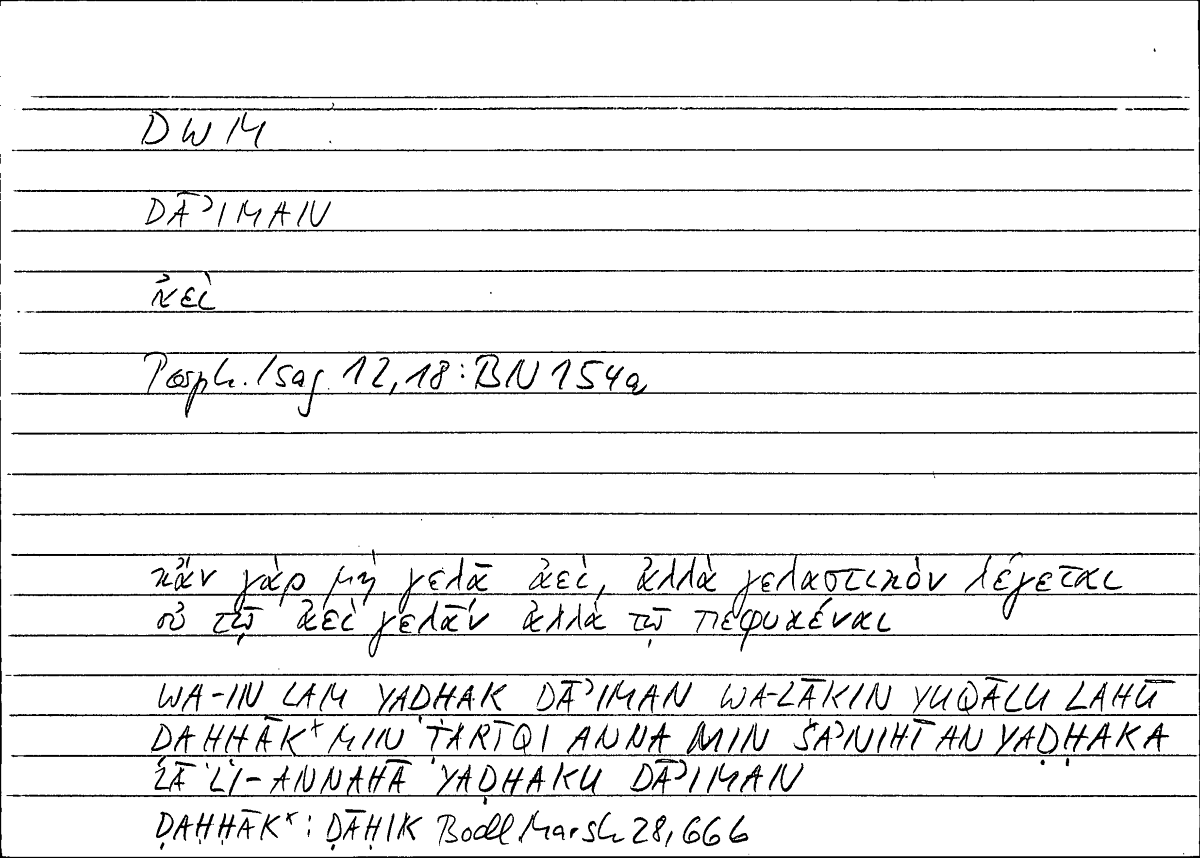 DWM
DĀʾIMAN
ἀεὶ
Porph. Isag. 12,18: BN 154a
κἂν γὰρ μὴ γελᾶ ἀεὶ, ἀλλὰ γελαστικὸν λέγεται
οὐ τῷ ἀεὶ γελᾶν ἀλλὰ τῷ πεφυκέναι
WA-IN LAM YAḌḤAK DĀʾIMAN WA-LĀKIN YUQĀLU LAHŪ
ḌAḤḤĀK* MIN ṬARĪQI ANNA MIN ŠAʾNIHĪ AN YAḌḤAKA
LĀ LI-ANNAHĀ YAḌHAKU DĀʾIMAN
ḌAḤḤĀK*: ḌĀḤIK Bodl. Marsh 28, 66b